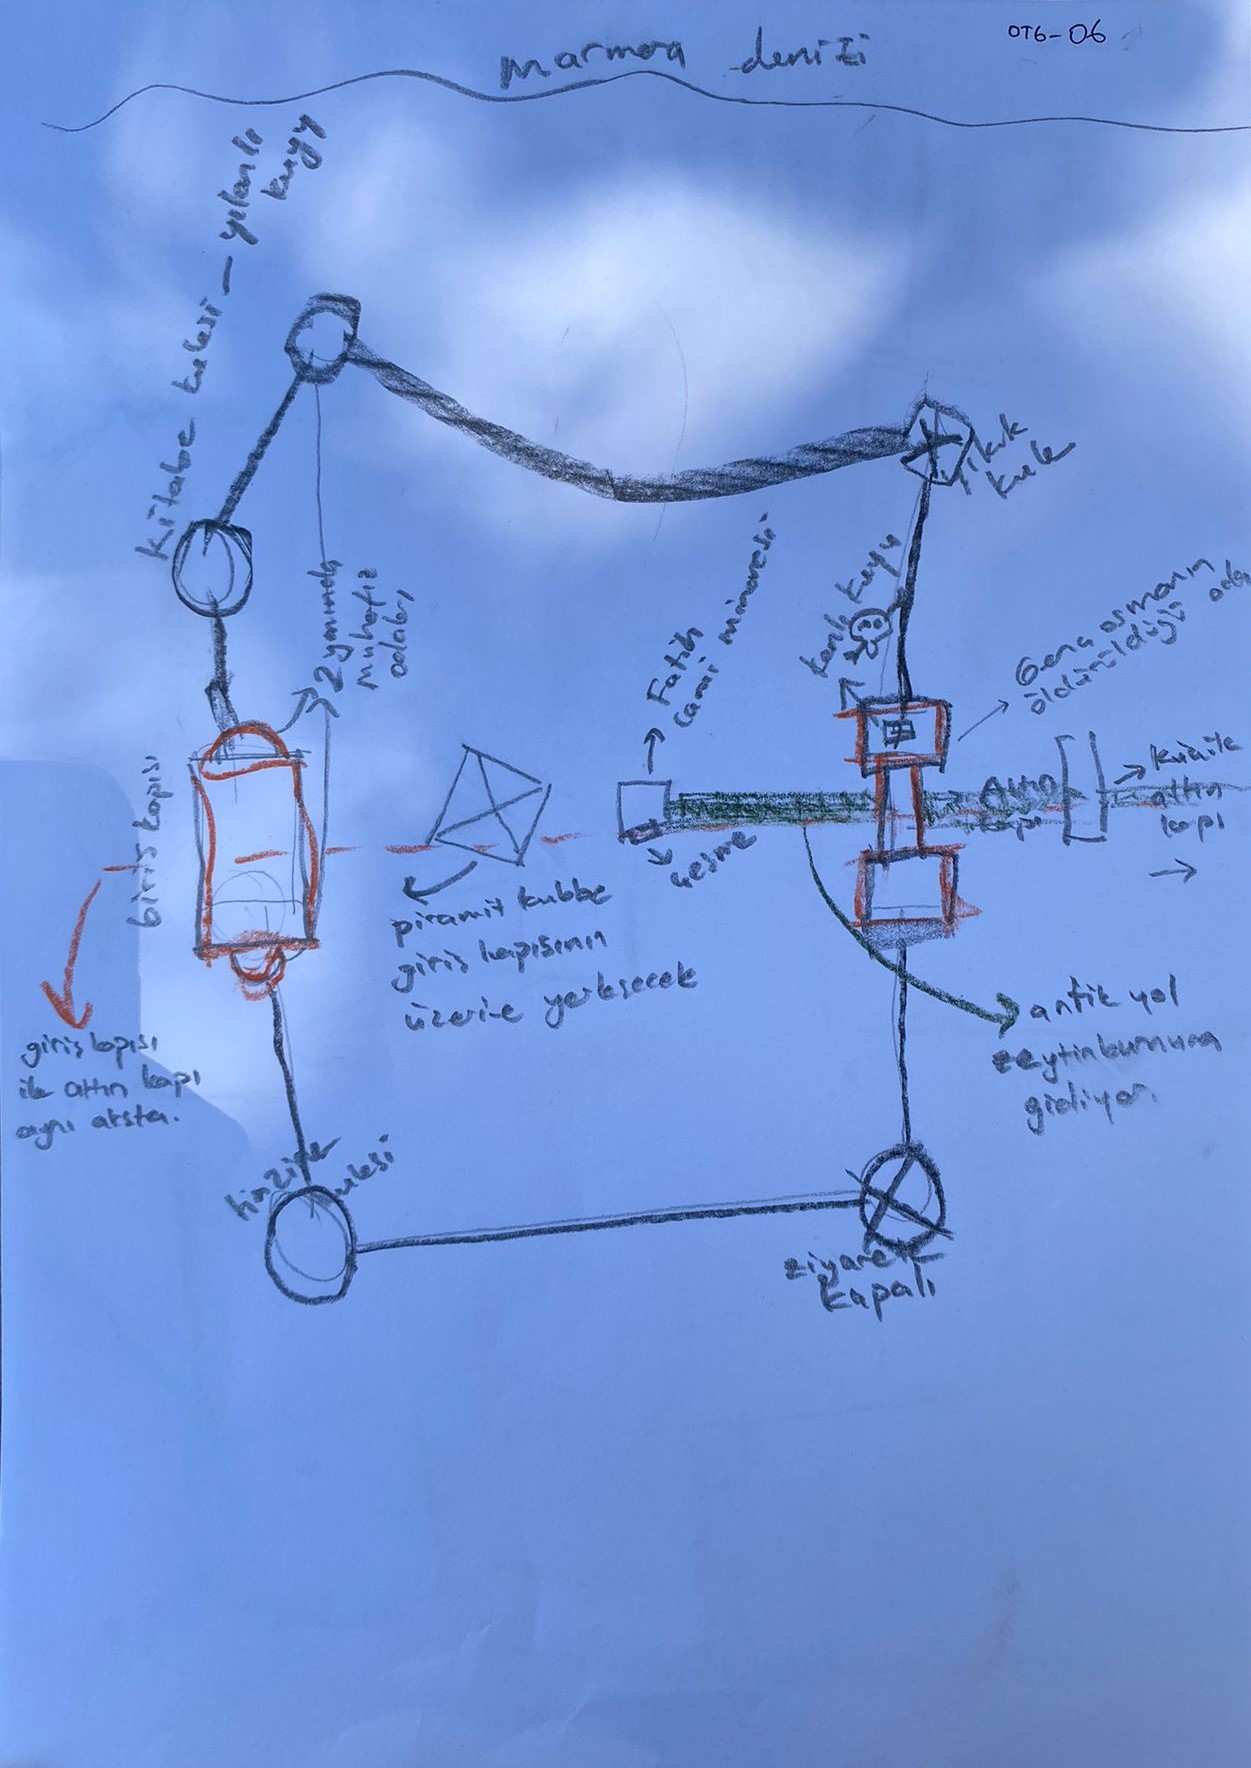 OTG-06
marmara denizi
kitabe kulesi — yılanlı
kuyu
yıkık
kule
2 yanında
muhafız
odaları
Fatih
cami minaresi
kanlı kuyu
Genç osmanın
öldürüldüğü oda
giriş kapısı
Altın
kapı
küçük
altın
kapı
çeşme
piramit kubbe
giriş kapısının
üzerine yerleşecek
antik yol
zeytinburnuna
gidiyor.
giriş kapısı
ile altın kapı
aynı aksta.
kulesi
ziyarete
kapalı